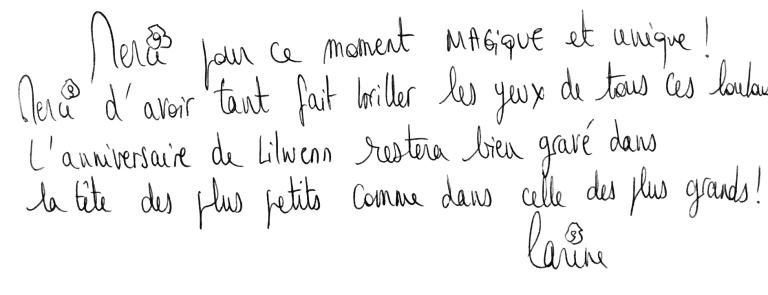 Merci pour ce moment MAGiQUE et unique !
Merci d'avoir tant fait briller les yeux de tous ces loulou
L'anniversaire de Lilwenn restera bien gravé dans
la tête des plus petits comme dans celle des plus grands !
Carine